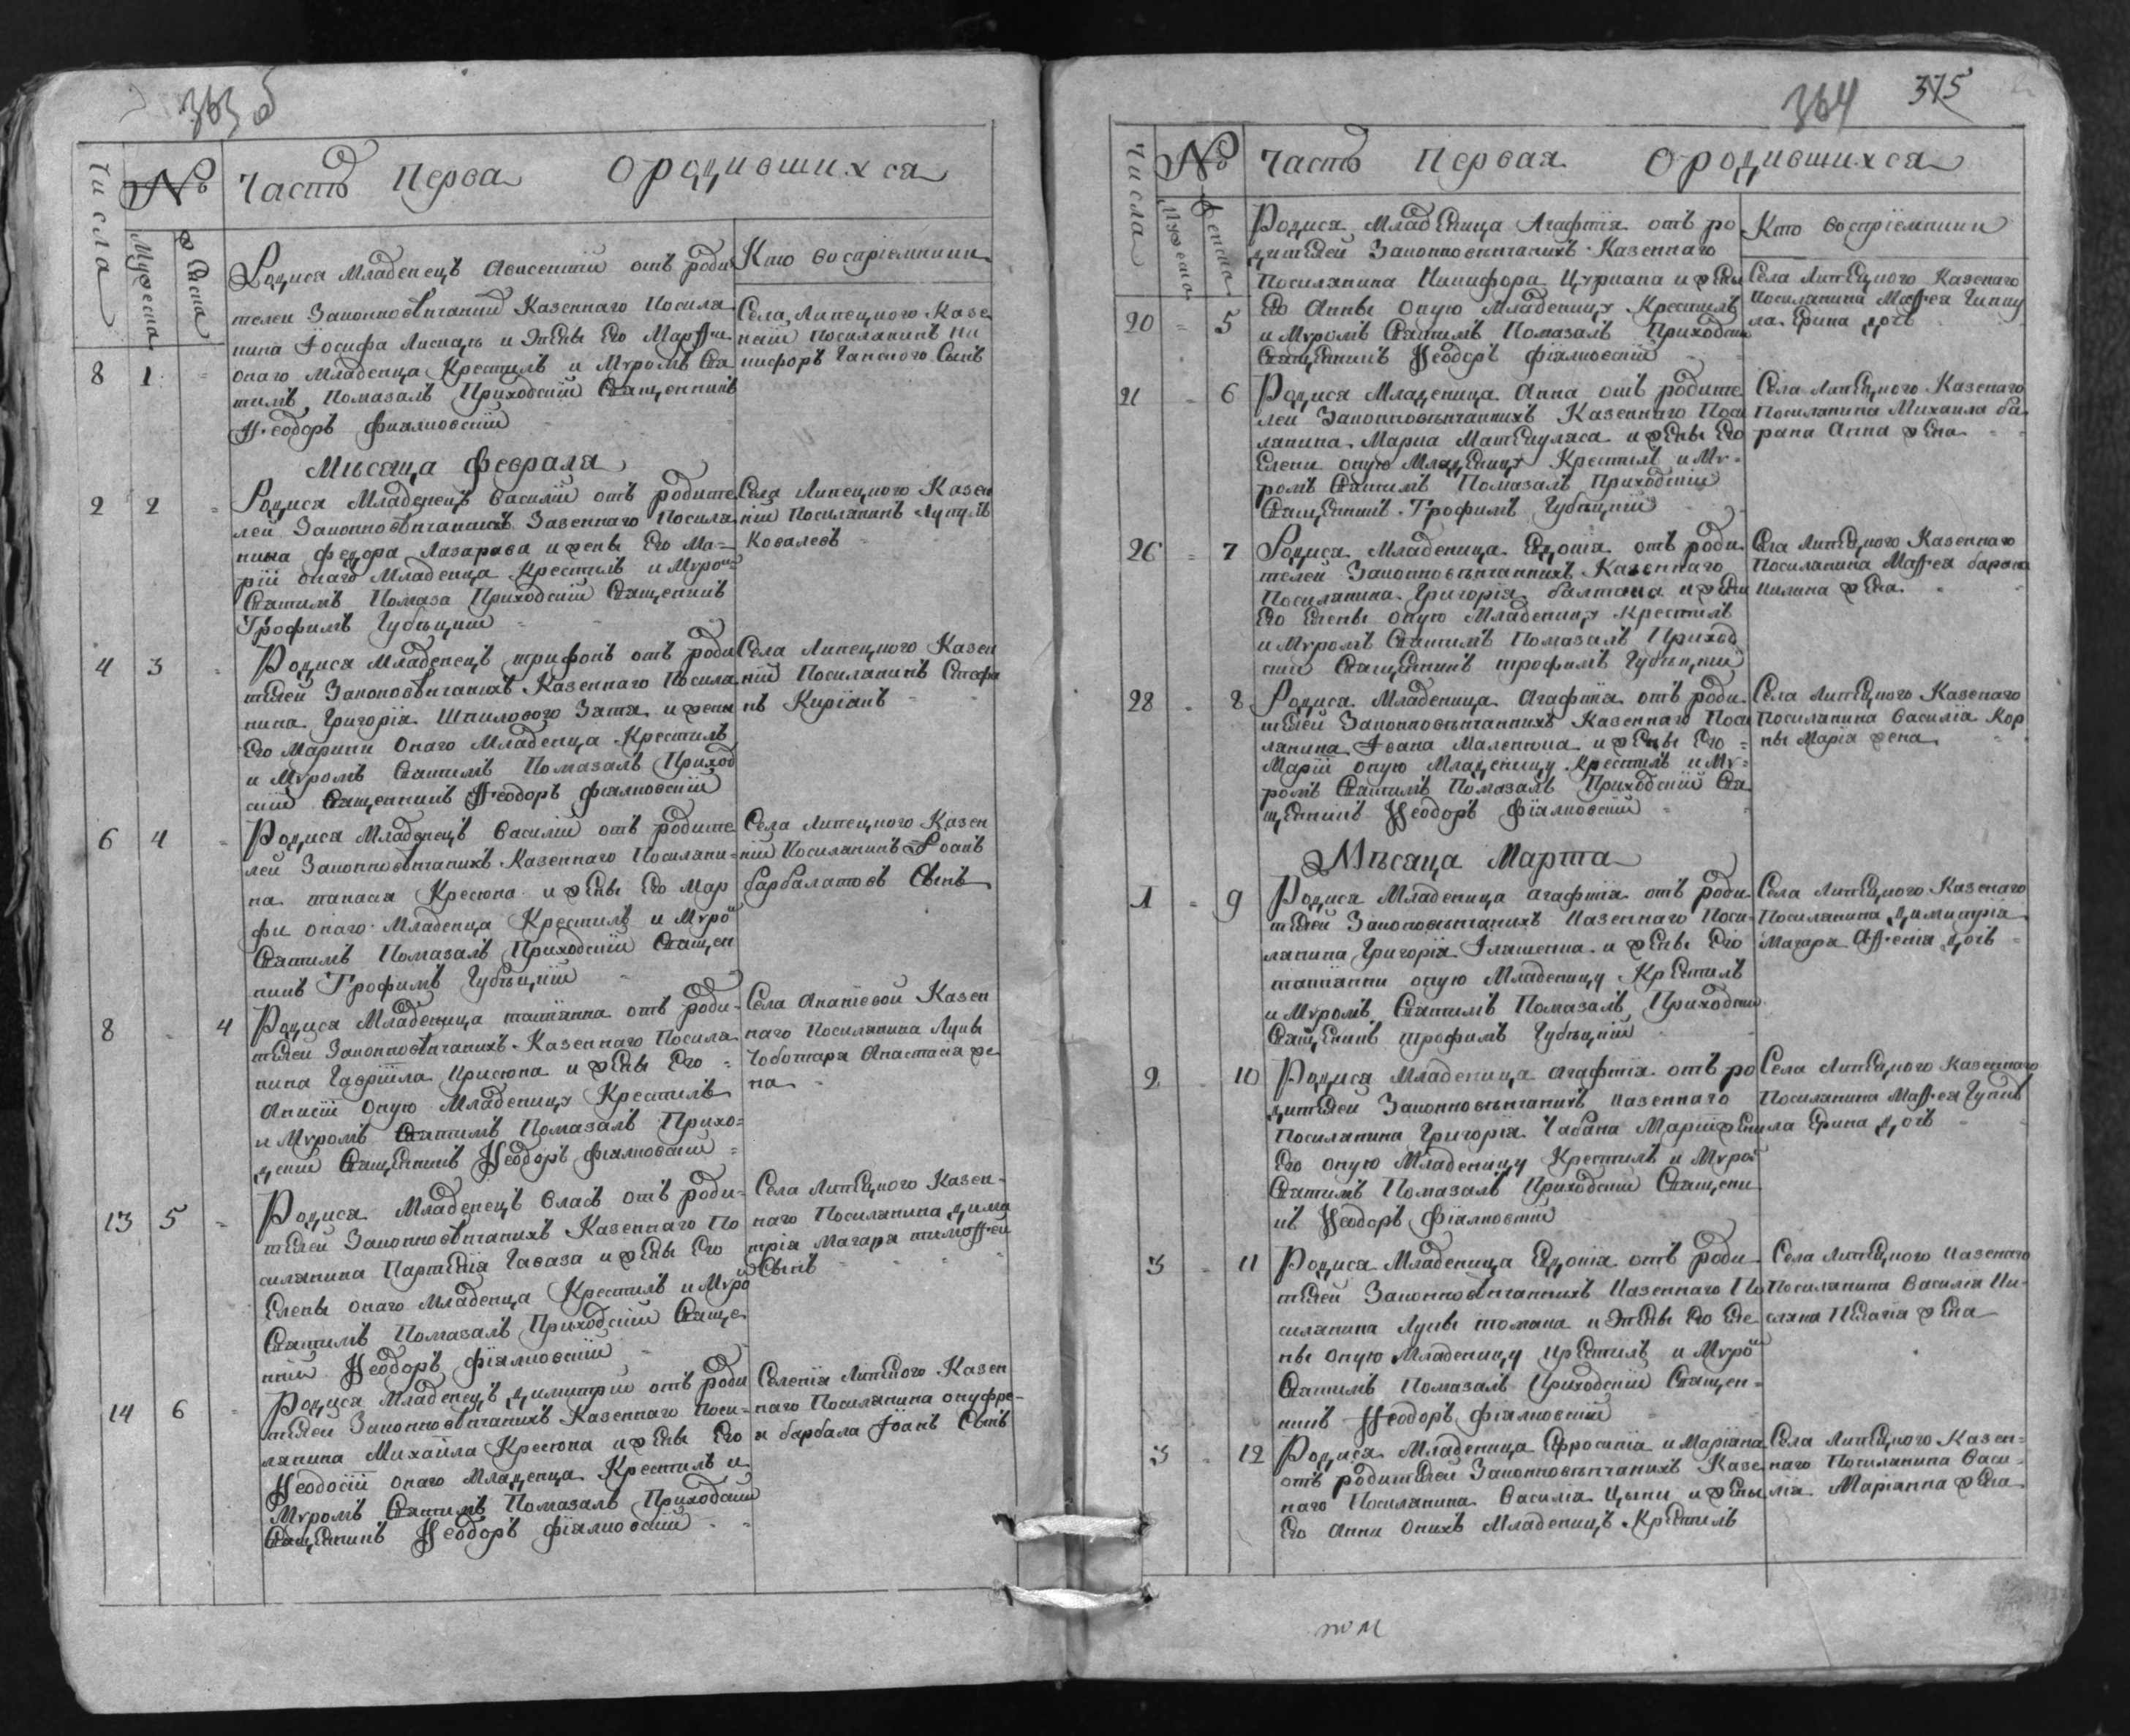 363 б
Числа
№
Часть Перва О родившихся
Мужеска
Женска
Родися Младенецъ Авксентий отъ роди
Кто воспріемники
телей Законповѣнчаний Казеннаго Посиля
нина Іосифа Лисналь и Жены Его Марѳи
8 1 онаго Младенца Крестилъ и Мѵромъ Свя
тимъ Помазалъ Приходский Священникъ
Ѳеодоръ Фиялковский
Села Липецкого Казен
ный Посилянинъ Ни
кифоръ Чапского Сынъ
Мѣсяца Февраля
2 2 Родися Младенецъ Василий отъ родите
лей Законновѣнчаних Зазеннаго Посиля
нина Федора Лазарева и жены Его Ма=
рии онаго Младенца Крестилъ и Мѵром
Святимъ Помаза Приходский Священникъ
Трофимъ Губѣцкий
Села Липецкого Казен
ний Посилянинъ Лупулъ
Ковалевъ
4 3 Родися Младенецъ трифонъ отъ роди
телей Законовѣнчанихъ Казеннаго Посиля
нина Григорія Шпилового Зятя и жени
Его Марини Онаго Младенца Крестилъ
и Мѵромъ Святимъ Помазалъ Приход
ский Священникъ Ѳеодоръ Фиялковский
Села Липецкого Казен
ний Посилянинъ Стефа
нъ Киріанъ
6 4 Родися Младенецъ Василий отъ родите
лей Законновѣнчанихъ Казеннаго Посиляни=
на танасия Кресюна и жены Его Мар
фи онаго Младенца Крестилъ и Мѵро
Святимъ Помазалъ Приходский Священ
никъ Трофимъ Губѣцкий
Села Липецкого Казен
ний Посилянинъ Іоанъ
барбалатовъ Сынъ
8 4 Родися Младеница татіанна отъ роди=
телей Законновѣнчанихъ Казеннаго Посиля
нина Гавріила Крисюна и жены Его =
Аниси оную Младеницу Крестилъ
и Мѵромъ Святимъ Помазалъ Прихо=
дский Священникъ Ѳеодоръ Фиялковский =
Села Анатевой Казен
наго Посилянина Луки
Чоботаря Анастасія же
на
13 5 Родися Младенецъ Власъ отъ роди=
телей Законновѣнчанихъ Казеннаго По
силянина Партенія Гаваза и жены Его
Елены онаго Младенца Крестилъ и Мѵро
Святимъ Помазалъ Приходский Свяще
нній Ѳеодоръ Фіялковский
Села Липецкого Казен=
наго Посилянина дими
трія Магаря тимоѳей
Сынъ
14 6 Родися Младенецъ димитрий отъ роди
телей Законновѣнчанихъ Казеннаго Поси=
лянина Михайла Кресюна и жены Его
Ѳеодосіи онаго Младенца Крестилъ и
Мѵромъ Святимъ Помазалъ Приходский
Священникъ Ѳеодоръ Фіялковский
Селенія Липецкого Казен
наго Посилянина онуфре=
я барбала Іоанъ Сынъ
364 375
Числа
№
Часть Первая О родившихся
Мужеска
Женска
Родися Младеница Агафтія отъ ро
дителей Законновѣнчанихъ Казеннаго
Посилянина Никифора Цуркана и жены
20 = 5 Его Анны оную Младеницу Крестилъ
и Мѵромъ Святимъ Помазалъ Приходски
Священникъ Ѳеодоръ Фіялковский
Кто воспріемники
Села Липецкого Казенаго
Посилянина Маѳея Гипку
ла Ерина дочь
21 6 Родися Младеница Анна отъ родите
лей Законновѣнчаннихъ Казеннаго Поси
лянина Марка Матенуляса и жены Его
Елени оную Младеницу Крестилъ и Мѵ=
ромъ Святимъ Помазалъ Приходский
Священникъ Трофимъ Губѣцкий
Села Липецкого Казенаго
Посилянина Михаила ба
рана Анна жена
26 = 7 Родися Младеница Едокія отъ роди
телей Законновѣнчаннихъ Казеннаго
Посилянина Григорія балтана и жены
Его Елены оную Младеницу Крестилъ
и Мѵромъ Святимъ Помазалъ Приход
ский Священникъ трофимъ Губѣцкий
Села Липецкого Казеннаго
Посилянина Маѳея барана
Килина жена
28 8 Родися Младеница Агафтія отъ роди
телей Законновѣнчаннихъ Казеннаго Поси
лянина Іоана Маленкина и жены Его =
Марій оную Младеницу Крестилъ и Мѵ=
ромъ Святимъ Помазалъ Приходский Свя
щенникъ Ѳеодоръ Фіялковский
Села Липецкого Казенаго
Посилянина Василія Кор
ны Марія жена
Мѣсяца Марта
1 = 9 Родися Младеница агафтія отъ роди
телей Законовѣнчанихъ Казеннаго Поси
лянина Григорія Іляшенка и жены Его
татіанни оную Младеницу Крестилъ
и Мѵромъ Святимъ Помазалъ Приходски
Священникъ трофимъ Губѣцкий
Села Липецкого Казенаго
Посилянина димитрія
Магаря Аѳтенія дочь
2 10 Родися Младеница агафтія отъ ро
дителей Законновѣнчанихъ Казеннаго
Посилянина Григорія Чабана Маріи жены
Его оную Младеницу Крестилъ и Мѵром
Святимъ Помазалъ Приходский Священи
къ Ѳеодоръ Фіялковский
Села Липецкого Казеннаго
Посилянина Маѳея Гупкъ
ла Ерина дочь
3 11 Родися Младеница Едокія отъ роди
телей Законновѣнчаннихъ Казеннаго По
силянина Луки томана и Жены Его Еле
ны оную Младеницу крестилъ и Мѵром
Святимъ Помазалъ Приходский Священ=
никъ Ѳеодоръ Фіялковский
Села Липецкого Казенаго
Посилянина Василія Ки
слана Пелагія жена
3 12 Родися Младеница Ефросинія и Маріана
отъ родителей Законновѣнчанихъ Казе
наго Посилянина Василія Цыпи и жены
Его Анни Онихъ Младеницъ Крестилъ
Села Липецкого Казен=
наго Посилянина Васи=
лія Маріанна жена